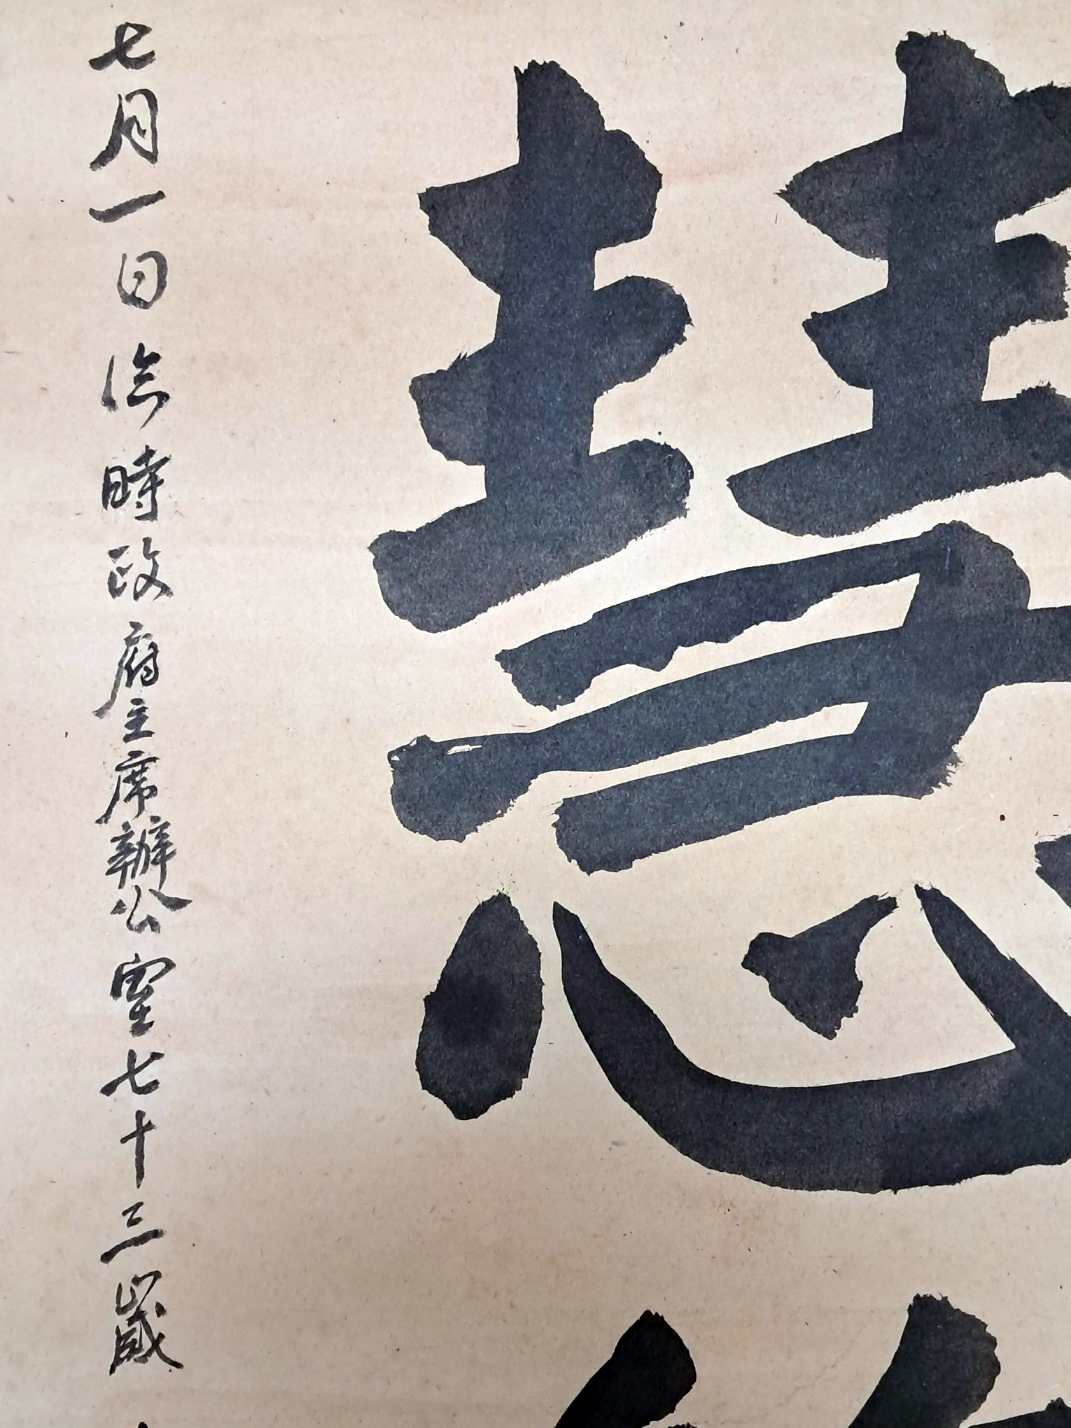 慧
七月一日臨時政府主席辦公室七十三歲